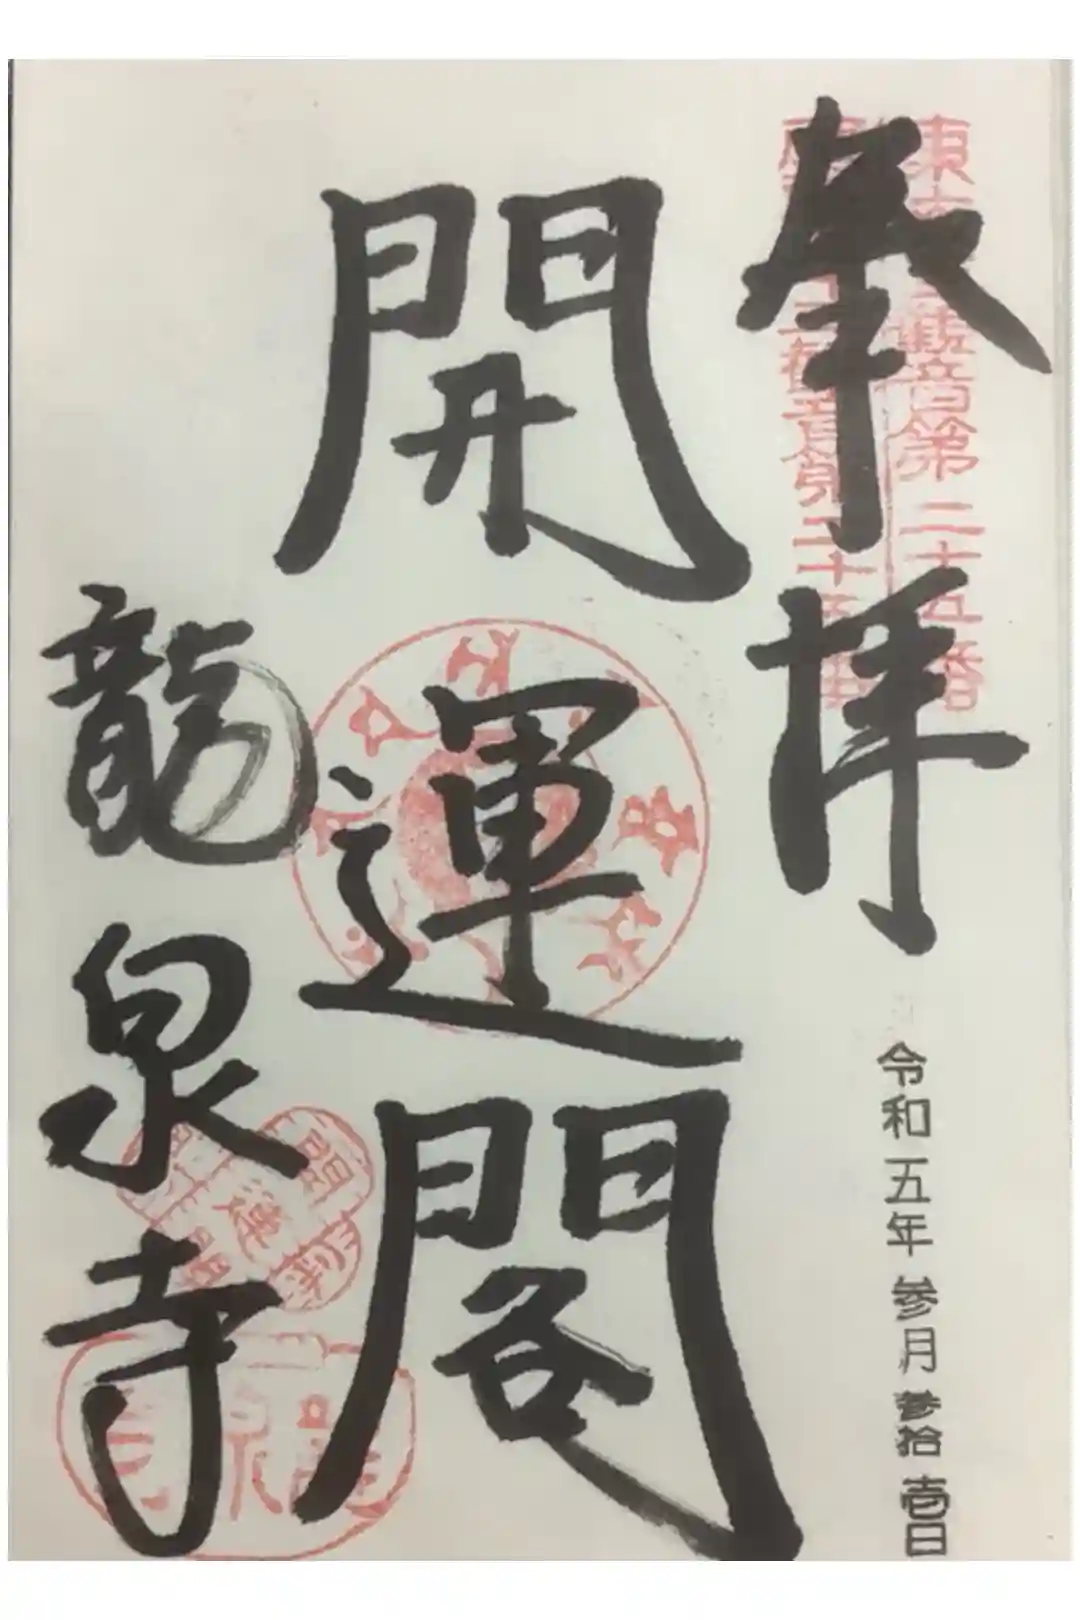 奉拝
令和五年参月参拾壱日
観音第二十五番
観音第二十五番
開運閣
龍泉寺